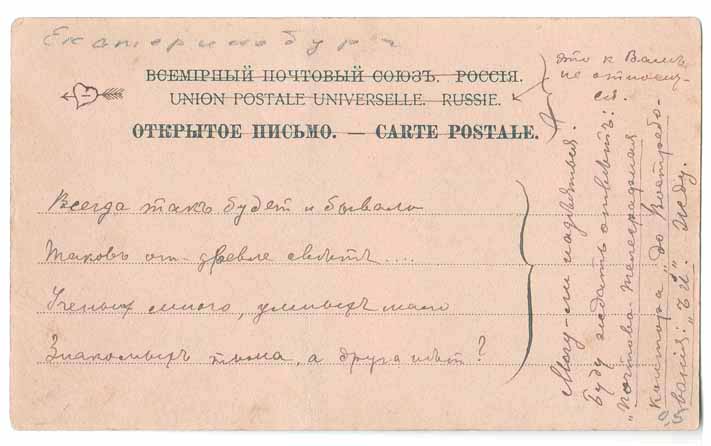 Екатеринобург
ВСЕМІРНЫЙ ПОЧТОВЫЙ СОЮЗЪ. РОССІЯ.
UNION POSTALE UNIVERSELLE. RUSSIE.
ОТКРЫТОЕ ПИСЬМО. — CARTE POSTALE.
это к Вамъ
не относит-
ся.
Всегда такъ будет и бывало
Таковъ от-древле свѣтъ....
Ученых много, умныхъ мало
Знакомыхъ тьма, а друга нѣт?
Могу-ли надѣяться.
буду ждать отвѣтъ:
"почтово-телеграфная
контора" до востребо-
вания: Жду.